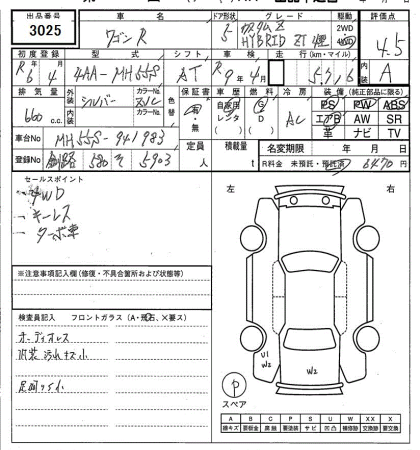 出品番号 車名 ドア形状 グレード 駆動 評価点
3025 ワゴンR 5 カスタムZ HYBRID ZT 2WD 4WD 4.5
初度登録 型式 シフト 車検 走行(km・マイル) 内装
R6 4 4AA-MH55S AT R9年4月 A
排気量 外装 シルバー カラーNo. Z2C 色替 保証書 車歴 燃料 冷房 装備(純正部品に限る)
660 c.c. 内装 カラーNo. 有・無 自家用 レンタ G D AC PS PW ABS
エアB AW SR
革 ナビ TV
車台No MH55S-941983 定員 人 積載量 t 名変期限 年 月 日
登録No 釧路 580 そ 5903 R料金 未預託・預託済 6470 円
セールスポイント 左 右
4WD
キーレス
ターボ車
※注意事項記入欄(修復・不具合箇所および状態等)
検査員記入 フロントガラス(A・飛石、×要ス)
オーディオレス
内装汚れキズ小
U1
W2
W2
P
スペア
A B C P S U W X XX
線キズ 要板金 腐蝕 要塗装 サビ 凹凸 補修跡 交換跡 要交換